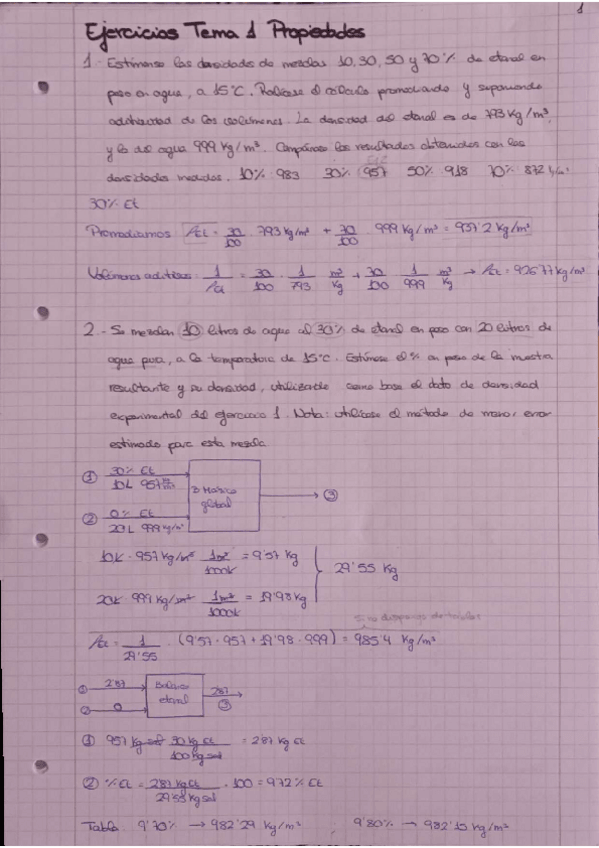 1
Ejercicios Tema 1 Propiedades
1.- Estímense las densidades de mezclas 10, 30, 50 y 70 % de etanol en
peso en agua, a 15°C. Realícese el cálculo promediando y suponiendo
aditividad de los volúmenes. La densidad del etanol es de 793 Kg/m³,
y la del agua 999 Kg/m³. Compárense los resultados obtenidos con las
densidades medidas. 10% 983 30% 957 50% 918 70% 872 kg/m³
30% Et
Promediamos ρEt = 30/100 · 793 Kg/m³ + 70/100 · 999 Kg/m³ = 937'2 Kg/m³
Volúmenes aditivos: 1/ρEt = 30/100 · 1/793 m³/Kg + 70/100 · 1/999 m³/Kg → ρEt = 926'77 Kg/m³
2.- Se mezclan 10 litros de agua al 30% de etanol en peso con 20 litros de
agua pura, a la temperatura de 15°C. Estímese el % en peso de la muestra
resultante y su densidad, utilizando como base el dato de densidad
experimental del ejercicio 1. Nota: utilícese el método de menor error
estimado para esta mezcla.
① 30% Et
10L 957
② 0% Et
20L 999 Kg/m³
B Másico
global
③
10L · 957 Kg/m³ 1m³/1000L = 9'57 Kg
29'55 Kg
20L · 999 Kg/m³ 1m³/1000L = 19'98 Kg
Si no dispongo de tablas
ρEt = 1/29'55 · (9'57 · 957 + 19'98 · 999) = 985'4 Kg/m³
① 2'87
② 0
Balance
etanol
2'87
③
① 9'57 Kg sol 30 Kg Et/100 Kg sol = 2'87 Kg Et
② % Et = 2'87 Kg Et/29'55 Kg sol · 100 = 9'72% Et
Tabla 9'70% → 982'29 Kg/m³ 9'80% → 982'15 Kg/m³